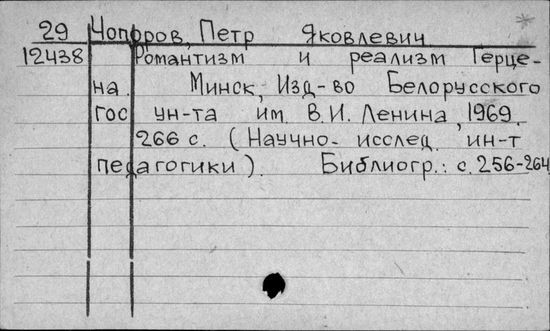 29 Чопоров, Петр Яковлевич
12438 Романтизм и реализм Герце-
на. Минск, Изд-во Белорусского
гос ун-та им. В.И. Ленина, 1969.
266 с. (Научно-исслед. ин-т
педагогики). Библиогр.: с. 256-264